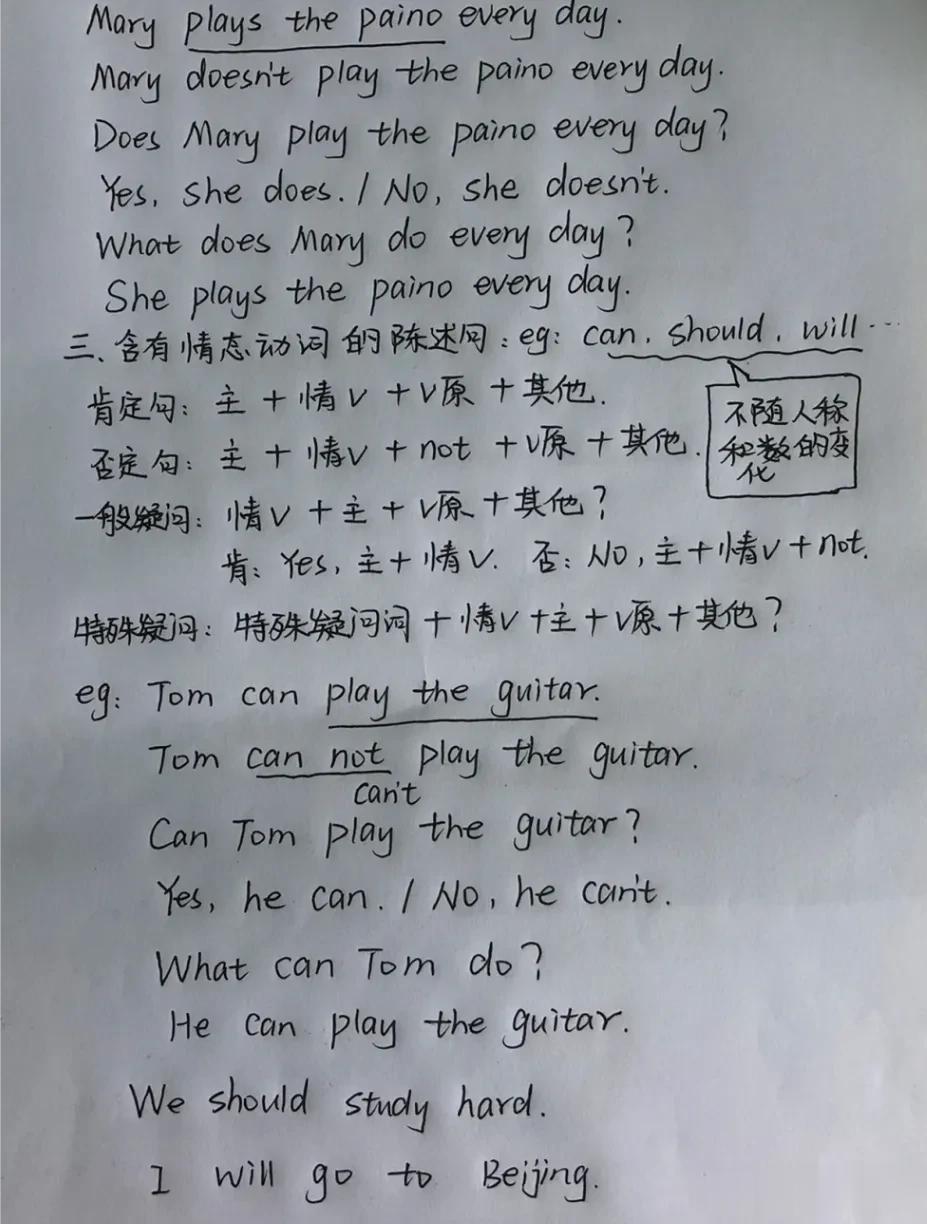 Mary plays the paino every day.
Mary doesn't play the paino every day.
Does Mary play the paino every day?
Yes, she does. / No, she doesn't.
What does Mary do every day?
She plays the paino every day.
三、含有情态动词的陈述句：eg: can, should, will...
不随人称
和数的变
化
肯定句：主+情V+V原+其他.
否定句：主+情V+not+V原+其他.
一般疑问：情V+主+V原+其他?
肯：Yes, 主+情V. 否：No, 主+情V+not.
特殊疑问：特殊疑问词+情V+主+V原+其他?
eg: Tom can play the guitar.
Tom can not play the guitar.
can't
Can Tom play the guitar?
Yes, he can. / No, he can't.
What can Tom do?
He can play the guitar.
We should study hard.
I will go to Beijing.